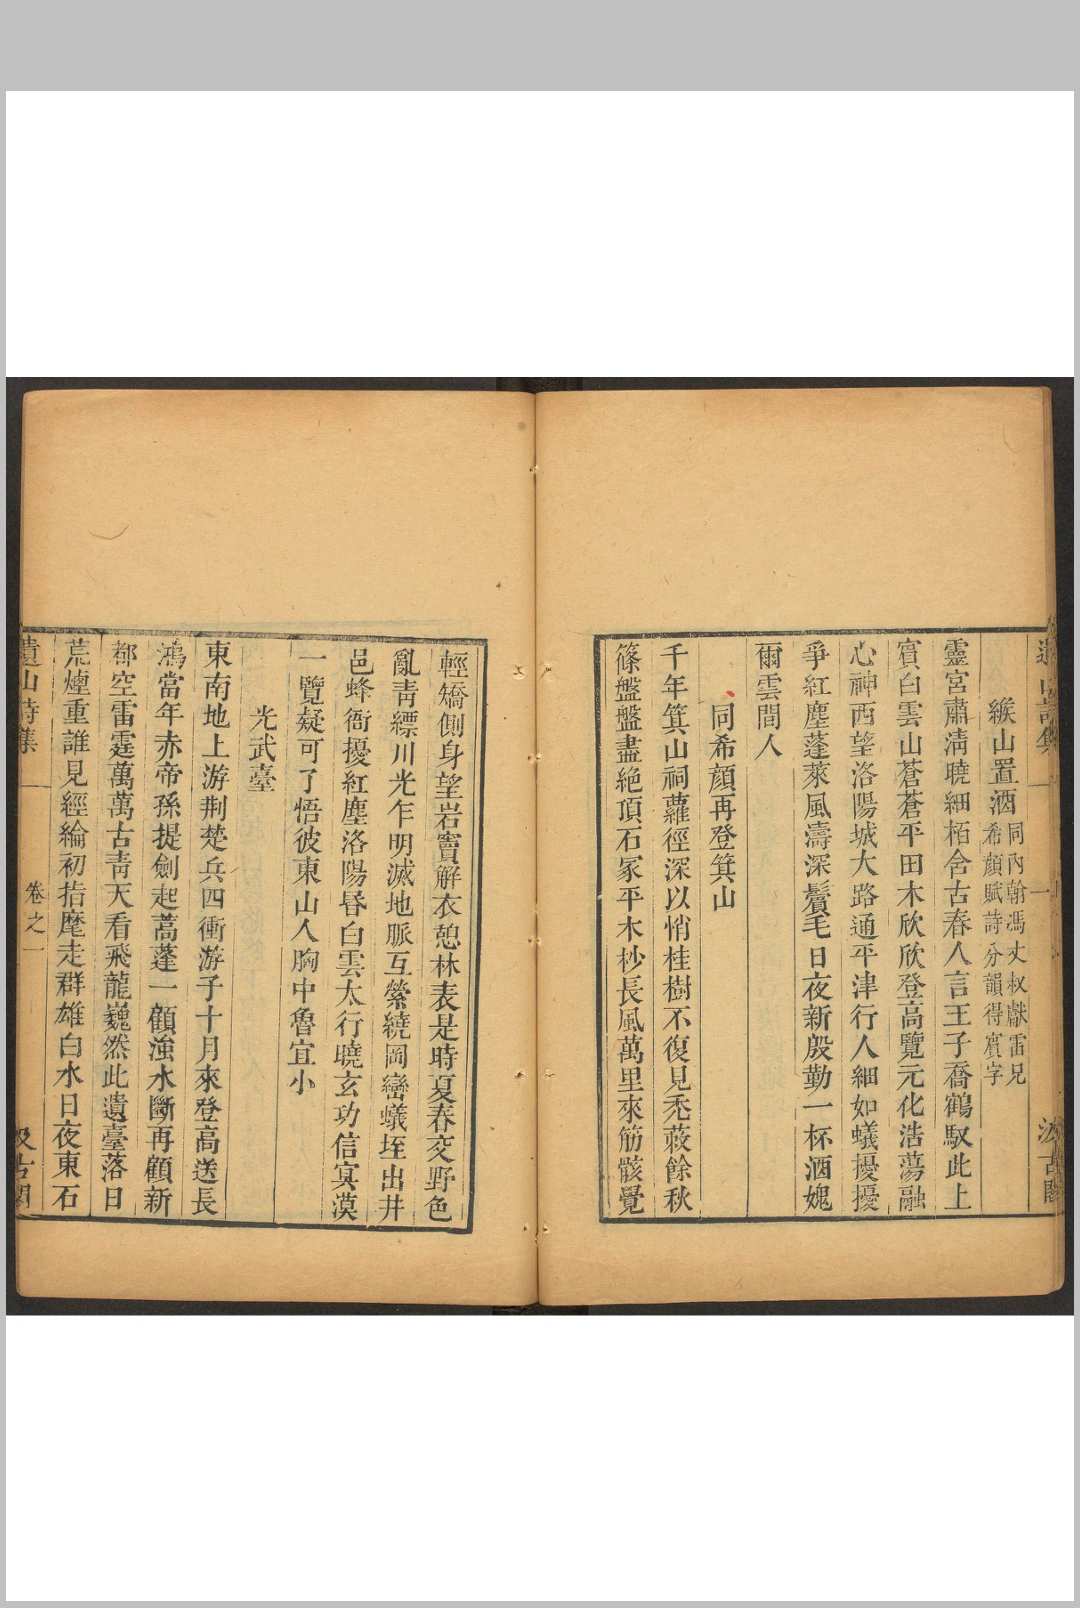 緱山置酒
同內翰馮丈叔獻雷兄
希顔賦詩分韻得賓字
靈宮肅清曉細栢含古春人言王子喬鶴馭此上
賓白雲山蒼蒼平田木欣欣登高覽元化浩蕩融
心神西望洛陽城大路通平津行人細如蟻擾擾
爭紅塵蓬萊風濤深鬢毛日夜新殷勤一杯酒媿
爾雲間人
同希顔再登箕山
千年箕山祠蘿徑深以悄桂樹不復見禿薐餘秋
篠盤盤盡絶頂石冢平木杪長風萬里來筋骸覺
輕矯側身望岩竇解衣憩林表是時夏春交野色
亂靑縹川光乍明滅地脈互縈繞岡巒蟻垤出井
邑蜂衙擾紅塵洛陽昏白雲太行曉玄功信冥漠
一覽疑可了悟彼東山人胸中魯宜小
光武臺
東南地上游荆楚兵四衝游子十月來登高送長
鴻當年赤帝孫提劍起蒿蓬一顧滍水斷再顧新
都空雷霆萬萬古靑天看飛龍巍然此遺臺落日
荒煙重誰見經綸初指麾走群雄白水日夜東石
遺山詩集
卷之一
汲古閣